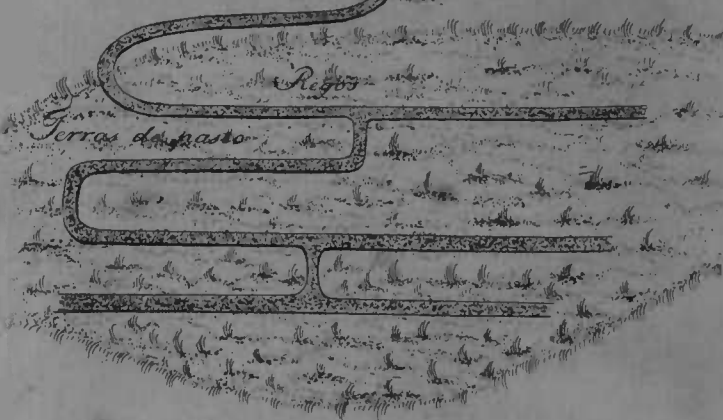 Regos
Terras de pasto